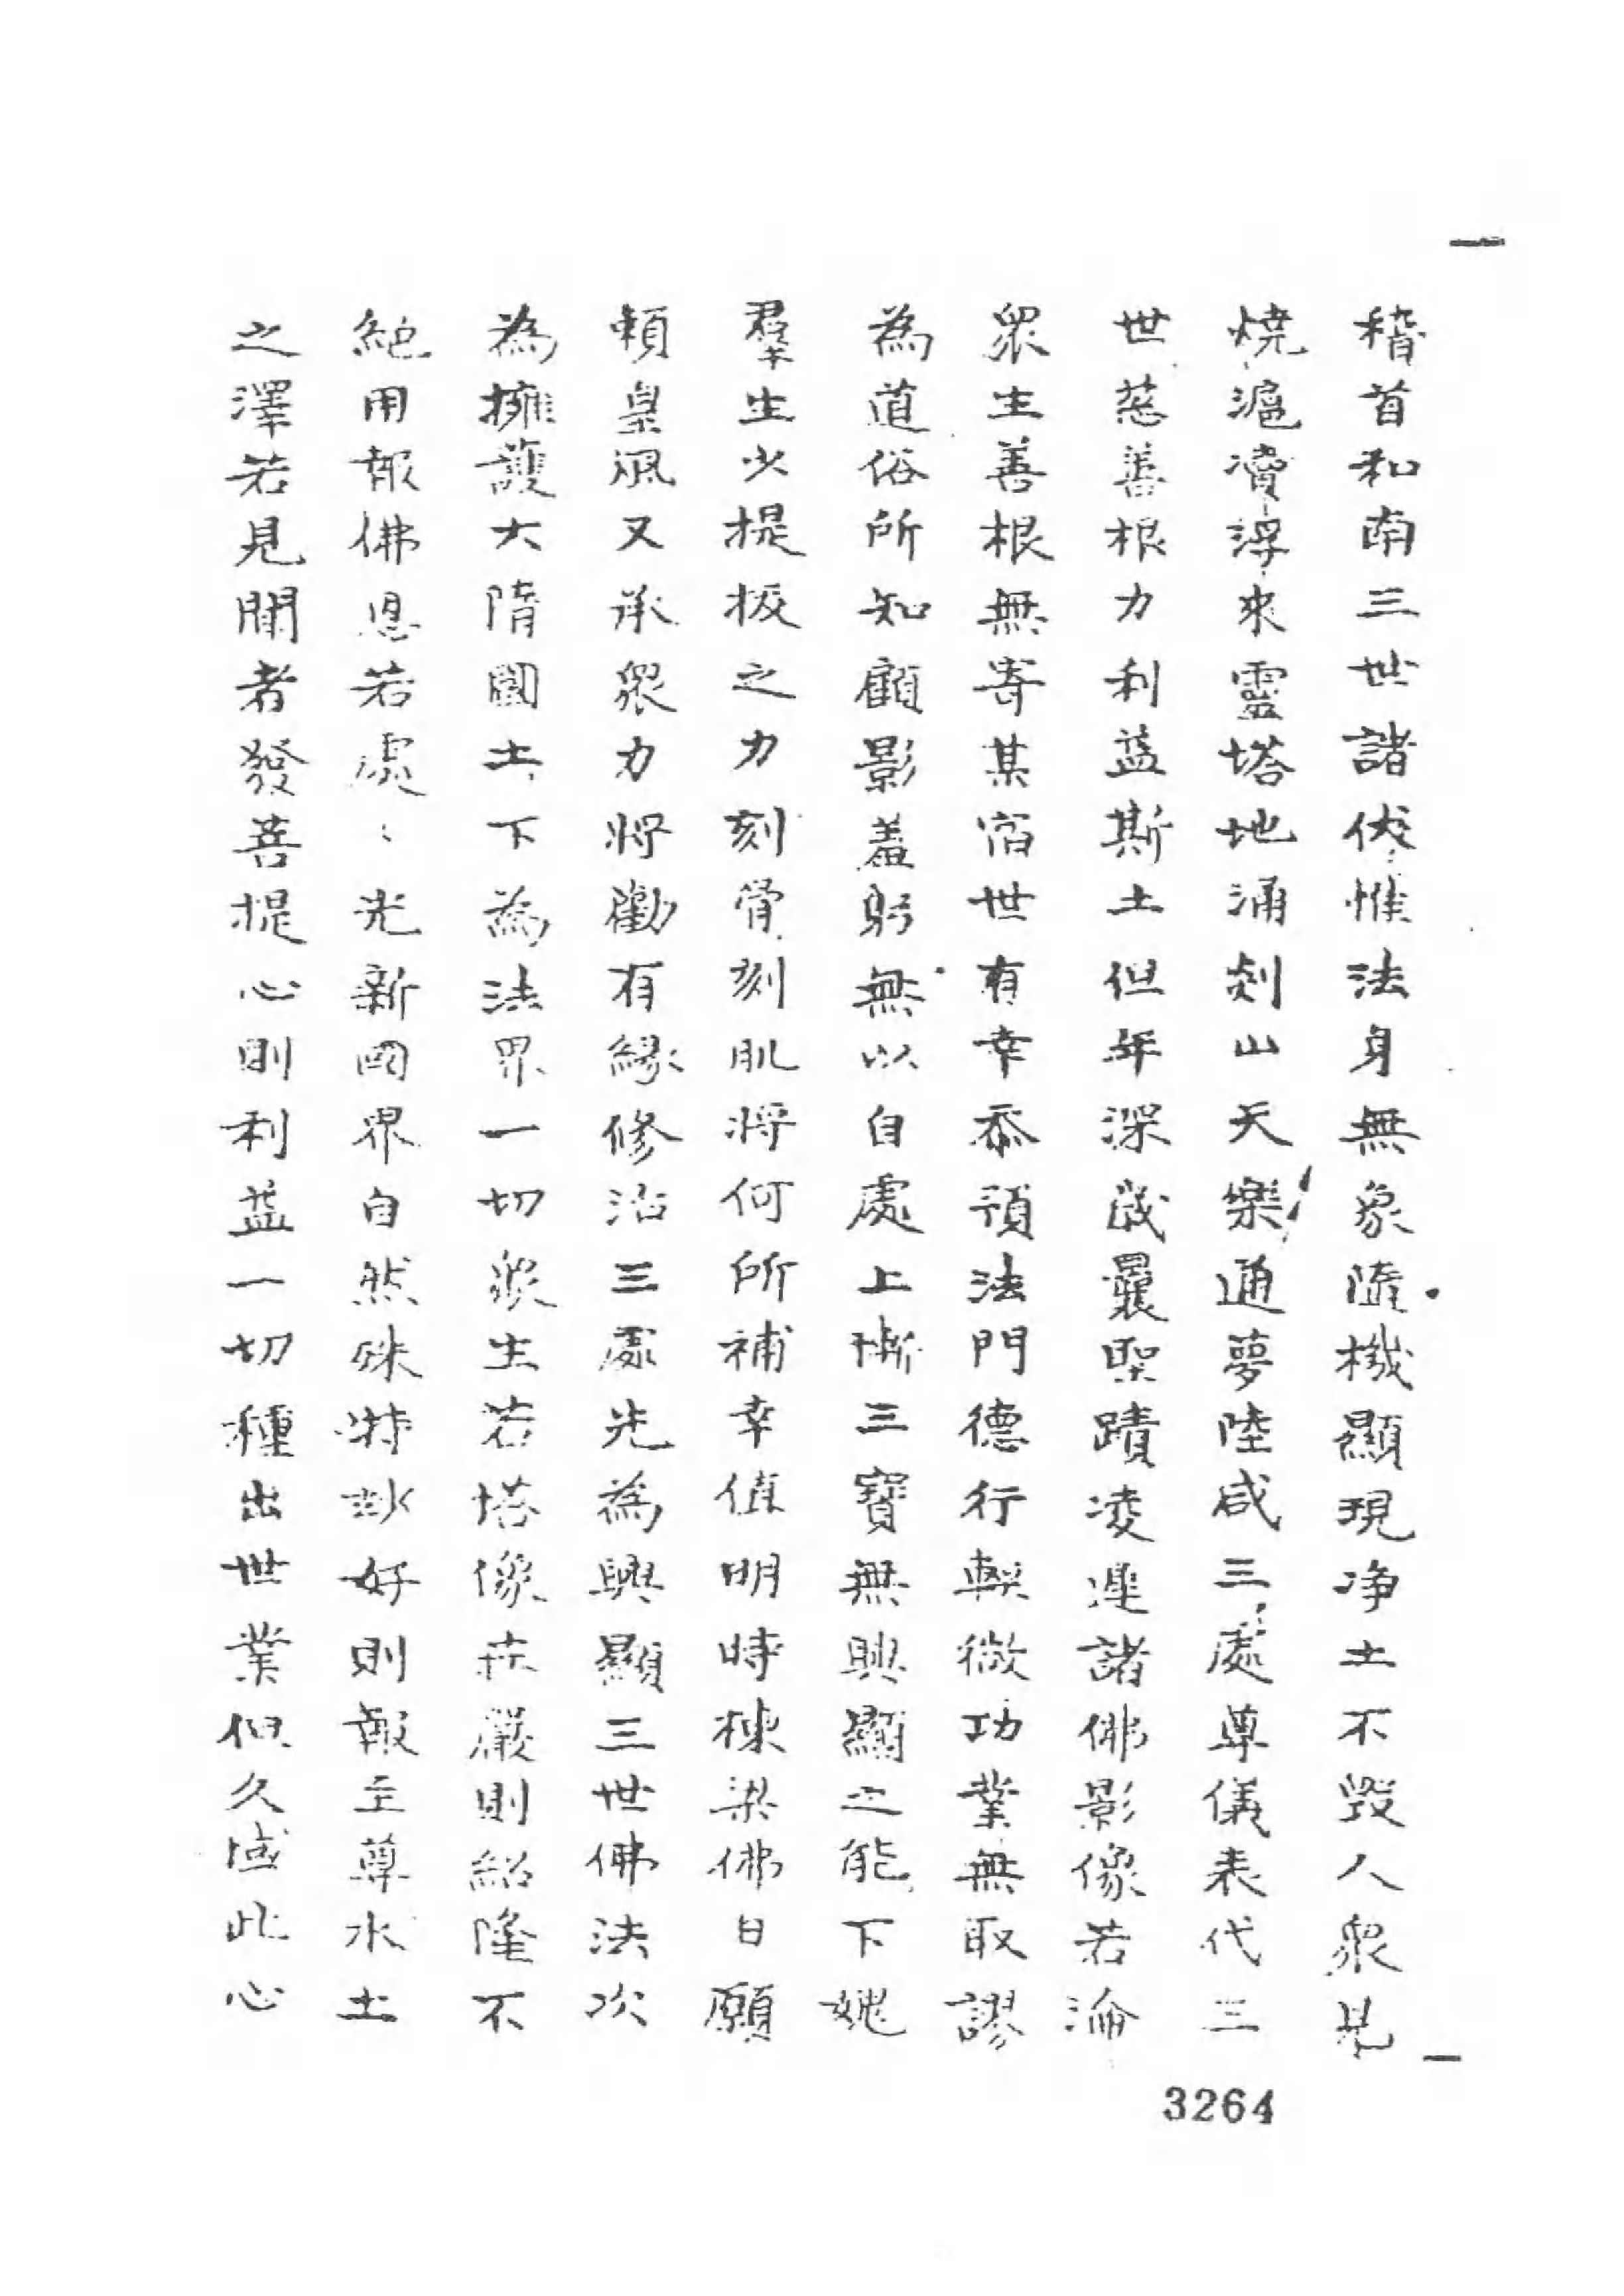 一
稽首和南三世諸伏惟法身無象隨機顯現净土不毀人衆見
燒滬瀆浮來靈塔地涌剡山天樂通夢陸咸三處尊儀表代三
世慈善根力利益斯土但年深歲曩聖蹟凌遲諸佛影像若淪
衆生善根無寄某宿世有幸忝預法門德行輕微功業無取謬
為道俗所知顧影羞躬無以自處上慚三寶無興顯之能下愧
羣生少提拔之力刻骨刻肌將何所補幸值明時棟梁佛日願
頼皇風又承衆力將勸有緣修治三處先為興顯三世佛法次
為擁護大隋國土下為法界一切衆生若塔像庄嚴則紹隆不
絕用報佛恩若處〻光新國界自然殊特妙好則報至尊水土
之澤若見聞者發菩提心則利益一切種出世業但久域此心
一
3264